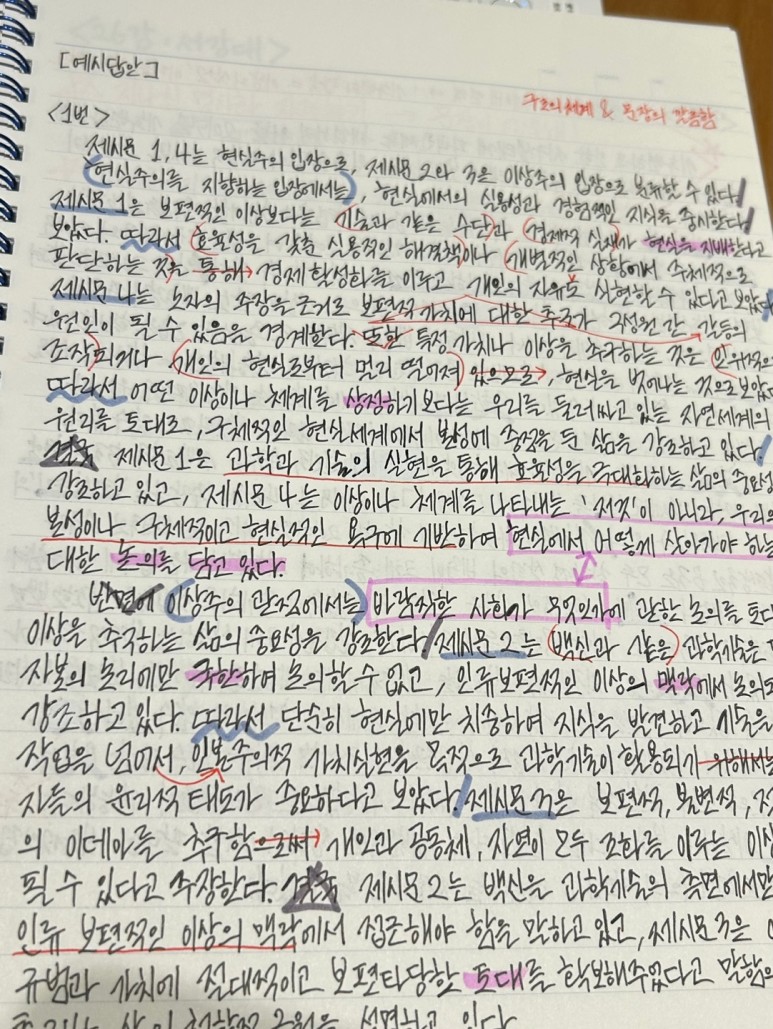 [예시답안]
구조의 체계 & 문장의 깔끔함
<1번>
제시문 1, 4는 현실주의 입장으로, 제시문 2와 3은 이상주의 입장으로 분류할 수 있다.
현실주의를 지향하는 입장에서는, 현실에서의 실용성과 경험적인 지식을 중시한다.
제시문 1은 보편적인 이상보다는 기술과 같은 수단과 경제적 실재가 현실을 지배한다고
보았다. 따라서 효율성을 갖춘 실용적인 해결책이나 개별적인 상황에서 주체적으로
판단하는 것을 통해 경제 활성화를 이루고 개인의 자유를 실현할 수 있다고 보았다.
제시문 4는 노자의 주장을 근거로 보편적 가치에 대한 추구가 구성원 간 갈등의
원인이 될 수 있음을 경계한다. 또한 특정 가치나 이상을 추구하는 것은 인위적으
조작되거나 개인의 현실로부터 멀리 떨어져 있으므로, 현실을 벗어나는 것으로 보았
따라서 어떤 이상이나 체계를 상정하기보다는 우리를 둘러싸고 있는 자연세계의
원리를 토대로, 구체적인 현실세계에서 본성에 중점을 둔 삶을 강조하고 있다.
결국 제시문 1은 과학과 기술의 실현을 통해 효율성을 극대화하는 삶의 중요성
강조하고 있고, 제시문 4는 이상이나 체계를 나타내는 '저것'이 아니라, 우리의
본성이나 구체적이고 현실적인 욕구에 기반하여 현실에서 어떻게 살아가야 하는
대한 논의를 담고 있다.
반면에 이상주의 관점에서는 바람직한 사회가 무엇인가에 관한 논의를 토대
이상을 추구하는 삶의 중요성을 강조한다. 제시문 2는 백신과 같은 과학기술은
자본의 논리에만 국한하여 논의할 수 없고, 인류 보편적인 이상의 맥락에서 논의되
강조하고 있다. 따라서 단순히 현실에만 치중하여 지식을 발견하고 기술을
작업을 넘어서, 인본주의적 가치실현을 목적으로 과학기술이 활용되기 위해서는
자들의 윤리적 태도가 중요하다고 보았다. 제시문 3은 보편적, 불변적,
의 이데아를 추구함으로써 개인과 공동체, 자연이 모두 조화를 이루는 이상
될 수 있다고 주장한다. 결국 제시문 2는 백신을 과학기술의 측면에서만
인류 보편적인 이상의 맥락에서 접근해야 함을 말하고 있고, 제시문 3은
규범과 가치에 절대적이고 보편타당한 토대를 확보해주었다고 말함으
설명하고 있다.